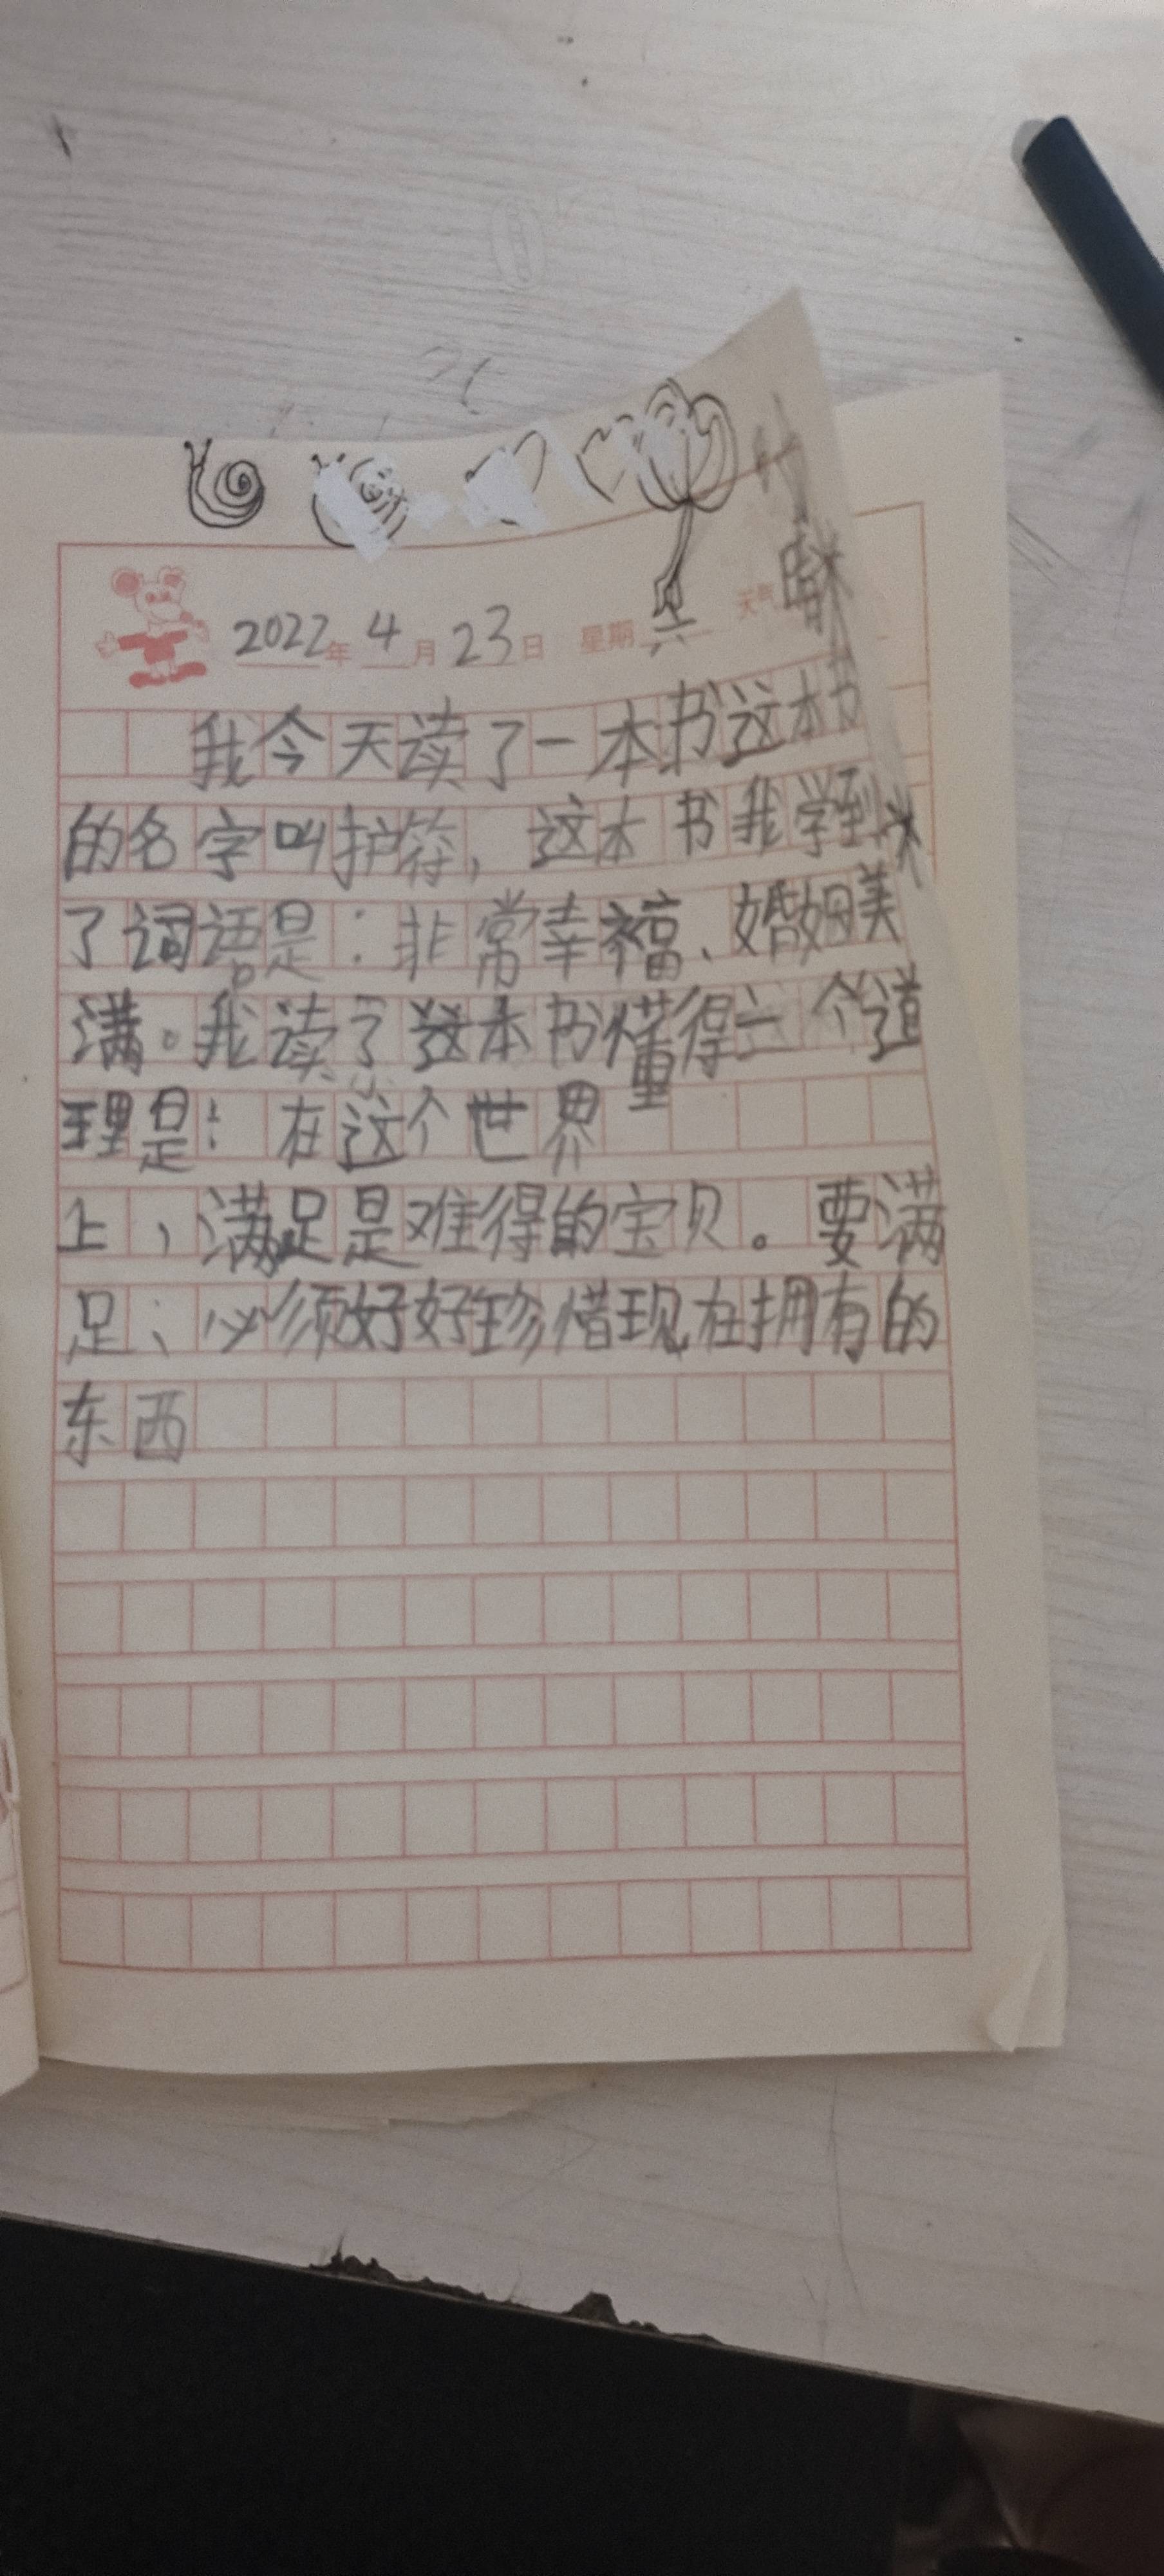 2022年4月23日 星期六 天气晴
我今天读了一本书这本书
的名字叫护符，这本书我学到
了词语是：非常幸福、婚姻美
满。我读了这本书懂得一个道
理是：在这个世界
上，满足是难得的宝贝。要满
足；必须好好珍惜现在拥有的
东西